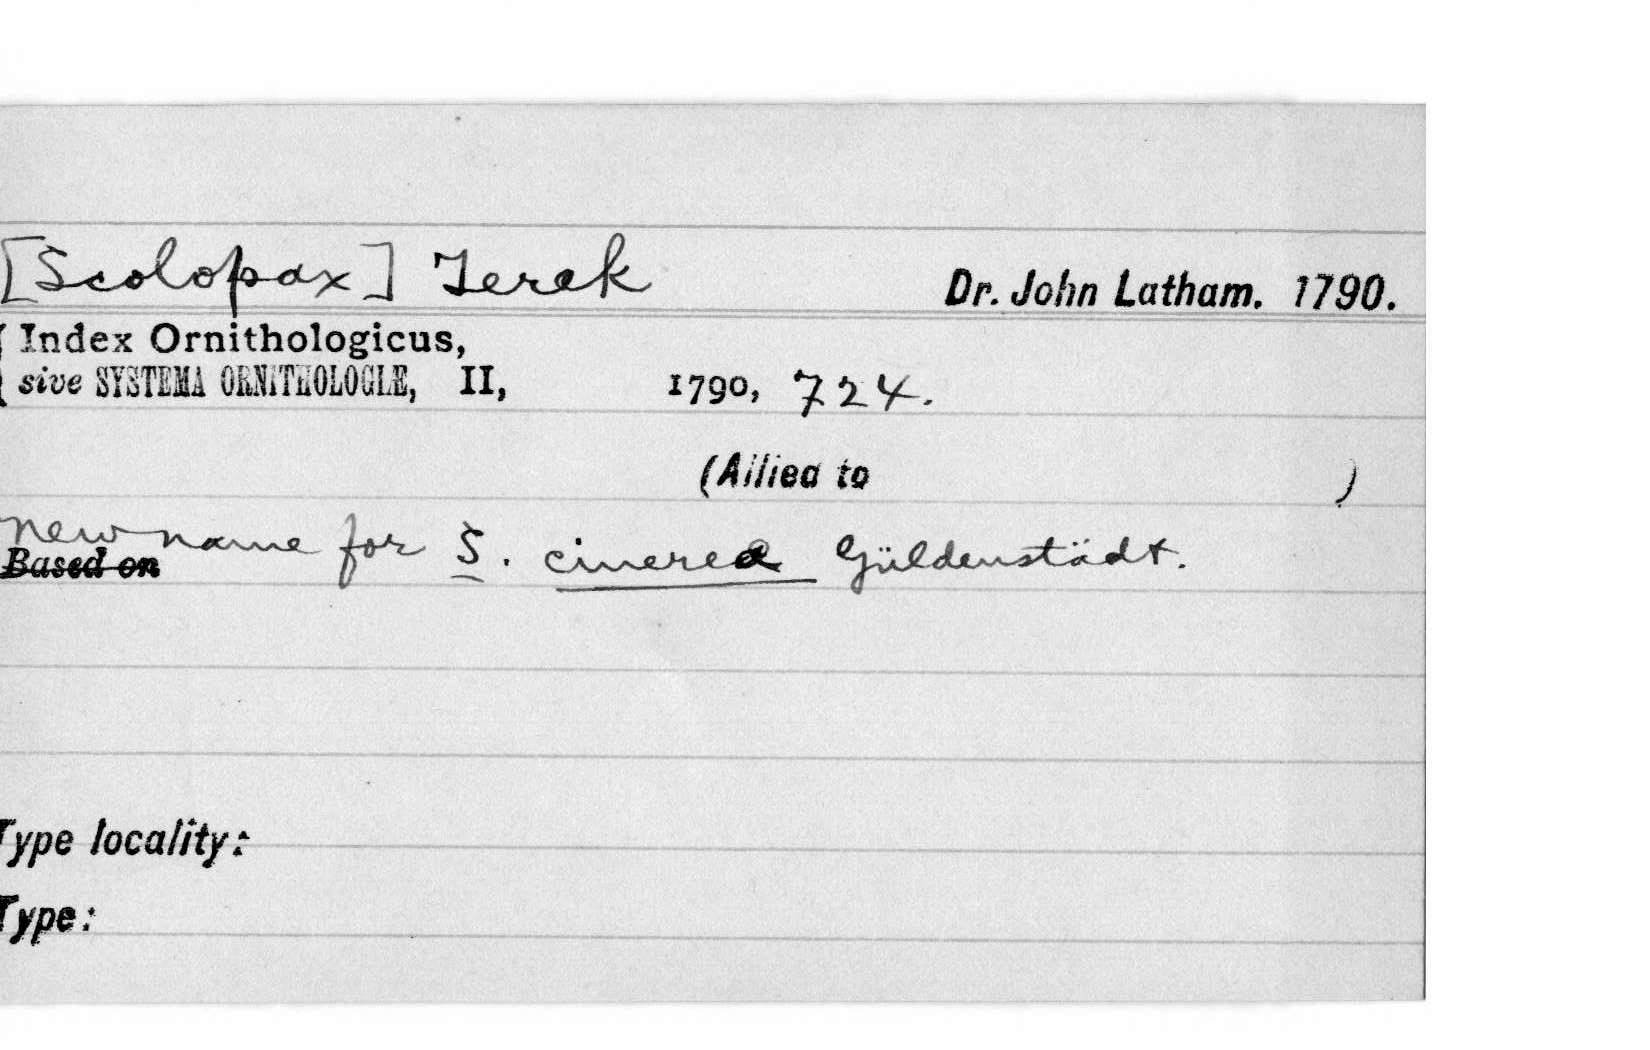 [Scolopax] Terek Dr. John Latham. 1790.
Index Ornithologicus,
sive SYSTEMA ORNITHOLOGIÆ, II, 1790, 724.
(Allied to )
new name for S. cinerea Güldenstädt.
Based on
Type locality:
Type: